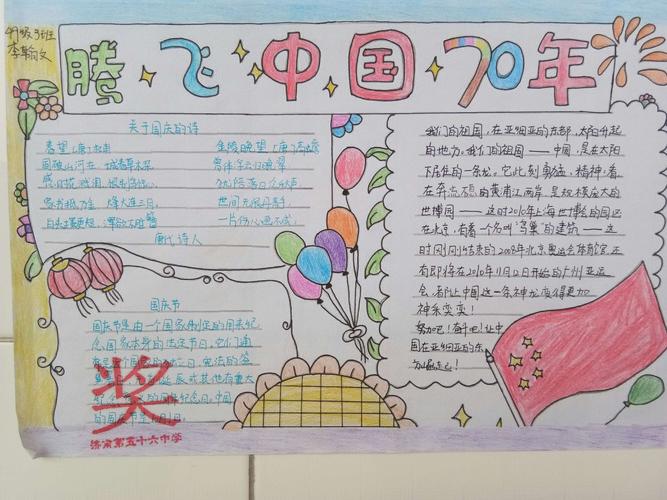 九级3班
李翰文
腾飞中国70年
关于国庆的诗
春望 唐 杜甫
国破山河在，城春草木深
感时花溅泪
烽火连三月
白头搔更短，浑欲不胜簪
金陵晚望 唐 高蟾
曾伴浮云归晚翠
犹陪落日泛秋声
世间无限丹青手
一片伤心画不成
唐代诗人
国庆节
国庆节是由一个国家制定的用来纪
念国家本身的法定节日，它们通
常是这个国家的独立日、宪法的签
奖
济南第五十六中学
我们的祖国，在亚细亚的东部，太阳升起
的地方。我们的祖国——中国，是在太阳
下居住的一条龙。它此刻勇猛，精神，看，
在奔流不息的黄浦江两岸是规模庞大的
世博园——这时2010年上海世博会的园区
在北京，有着一个名叫"鸟巢"的建筑——这
时刚刚结束的2008年北京奥运会体育馆，还
有即将在2010年11月12日开始的广州亚运
会，都让中国这一条神龙变得更加
神采奕奕！
努加吧！奋斗吧！让中
国在亚细亚的东
方崛起！